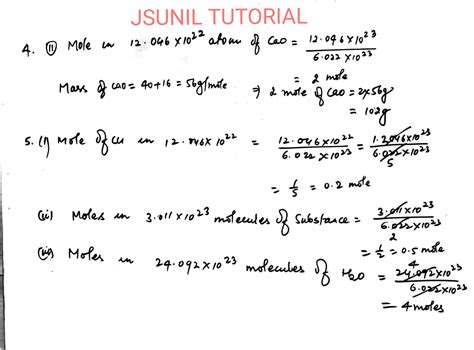 JSUNIL TUTORIAL
4. (ii) Mole in 12.046 × 10²² atom of CaO = 12.046 × 10²³ / 6.022 × 10²³
= 2 mole
Mass of CaO = 40+16 = 56g/mole ⇒ 2 mole of CaO = 2×56g
= 102g
5. (i) Mole of Cu in 12.046 × 10²² = 12.046 × 10²² / 6.022 × 10²³ = 1.2046 × 10²³ / 6.022 × 10²³ 5
= 1/5 = 0.2 mole
(ii) Moles in 3.011 × 10²³ molecules of Substance = 3.011 × 10²³ / 6.022 × 10²³ 2
= 1/2 = 0.5 mole
(iii) Moles in 24.092 × 10²³ molecules of H₂O = 4 24.092 × 10²³ / 6.022 × 10²³
= 4 moles